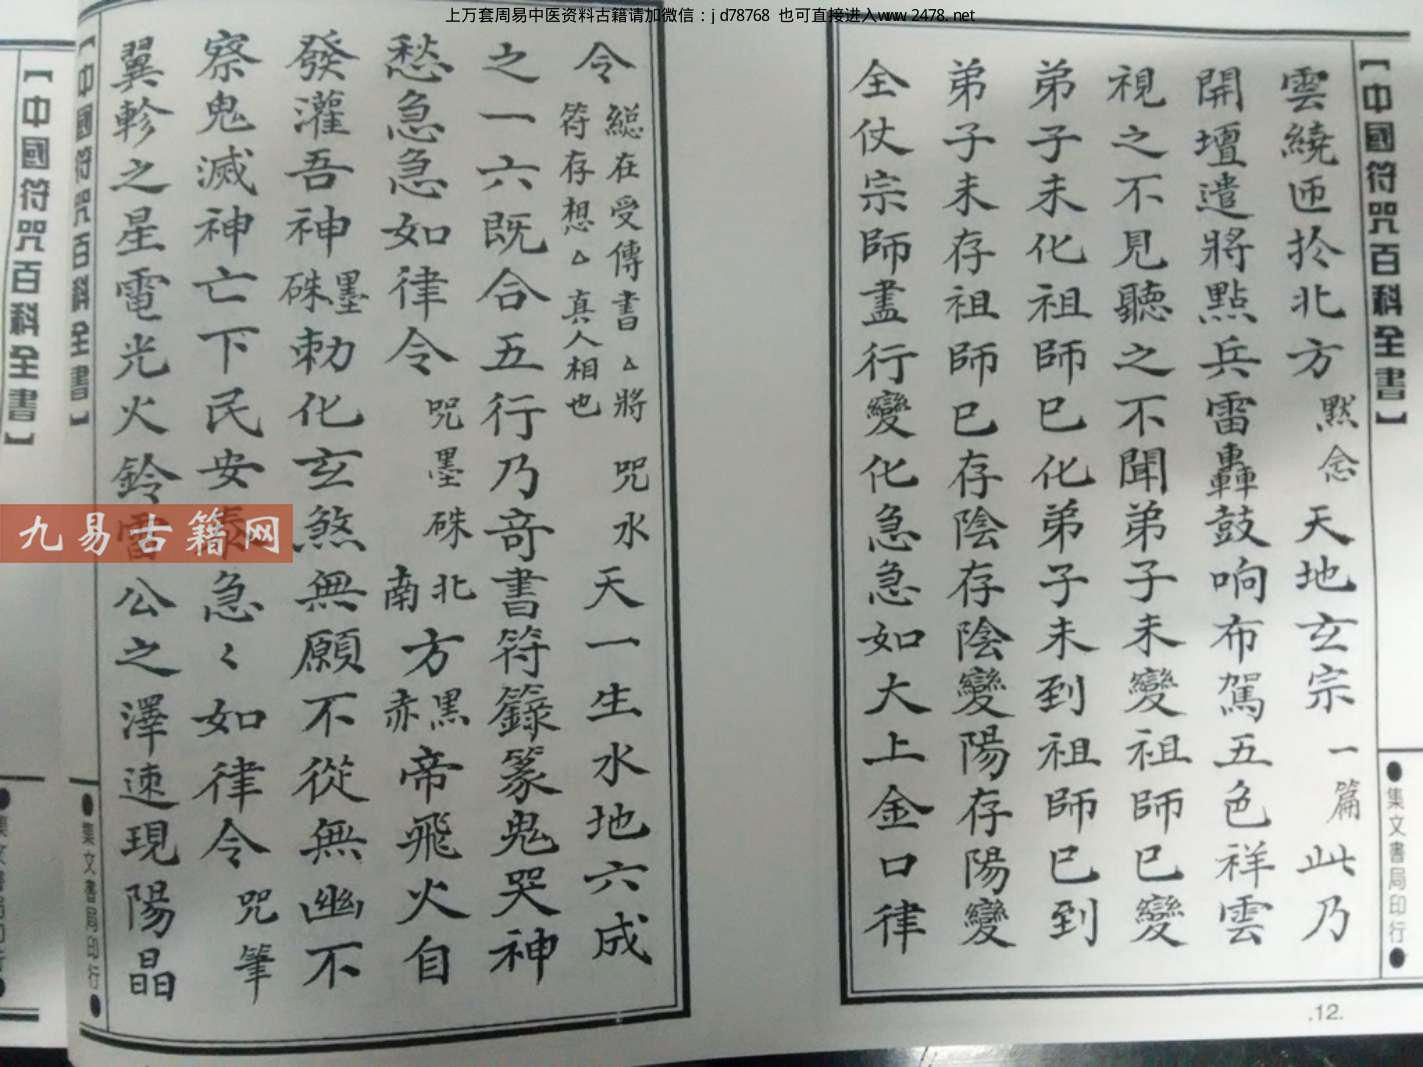 上万套周易中医资料古籍请加微信：jd78768 也可直接进入www.2478.net
【中國符咒百科全書】
●集文書局印行●
雲繞匝扵北方 默念 天地玄宗 一篇 此乃
開壇遣將點兵雷轟鼓响布駕五色祥雲
視之不見聽之不聞弟子未變祖師巳變
弟子未化祖師巳化弟子未到祖師巳到
弟子未存祖師巳存陰存陰變陽存陽變
全仗宗師盡行變化急急如大上金口律
.12.
令 総在受傳書△將符存想△真人相也 咒水 天一生水地六成
之一六既合五行乃竒書符籙篆鬼哭神
愁急急如律令 咒墨硃 北南方黑赤帝飛火自
發灌吾神墨硃勅化玄煞無願不從無幽不
察鬼滅神亡下民安泰急〻如律令 咒筆
翼軫之星電光火鈴雷公之澤速現陽晶
【中國符咒百科全書】
●集文書局印行●
【中國符咒百科全書】
九易古籍网